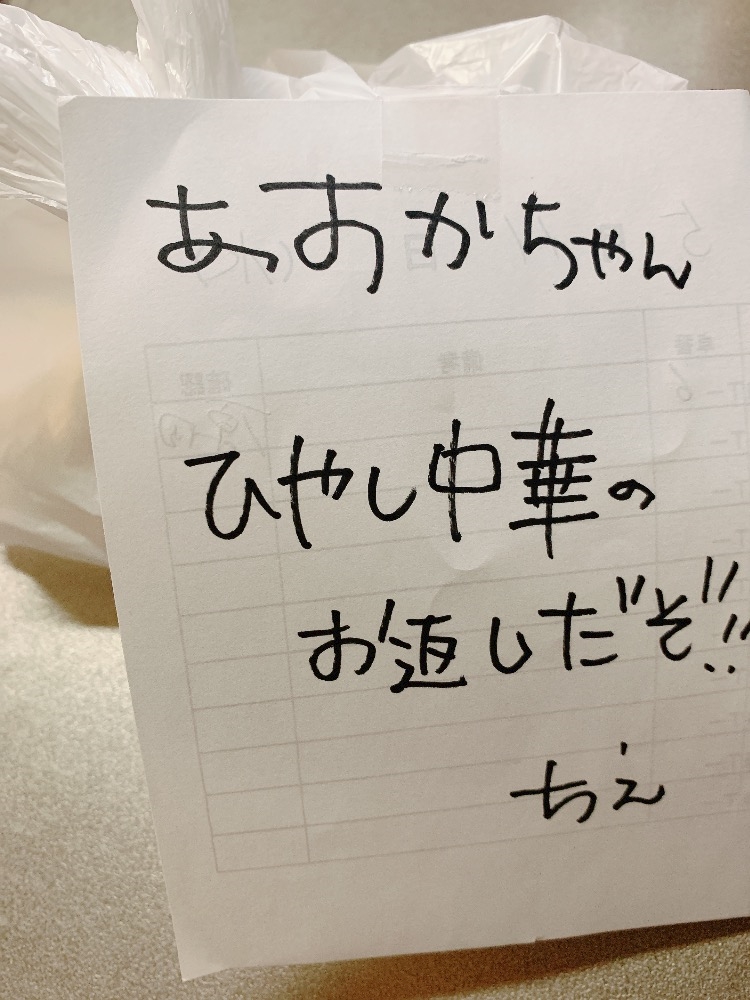 あすかちゃん
ひやし中華の
お返しだぞ!!
ちえ